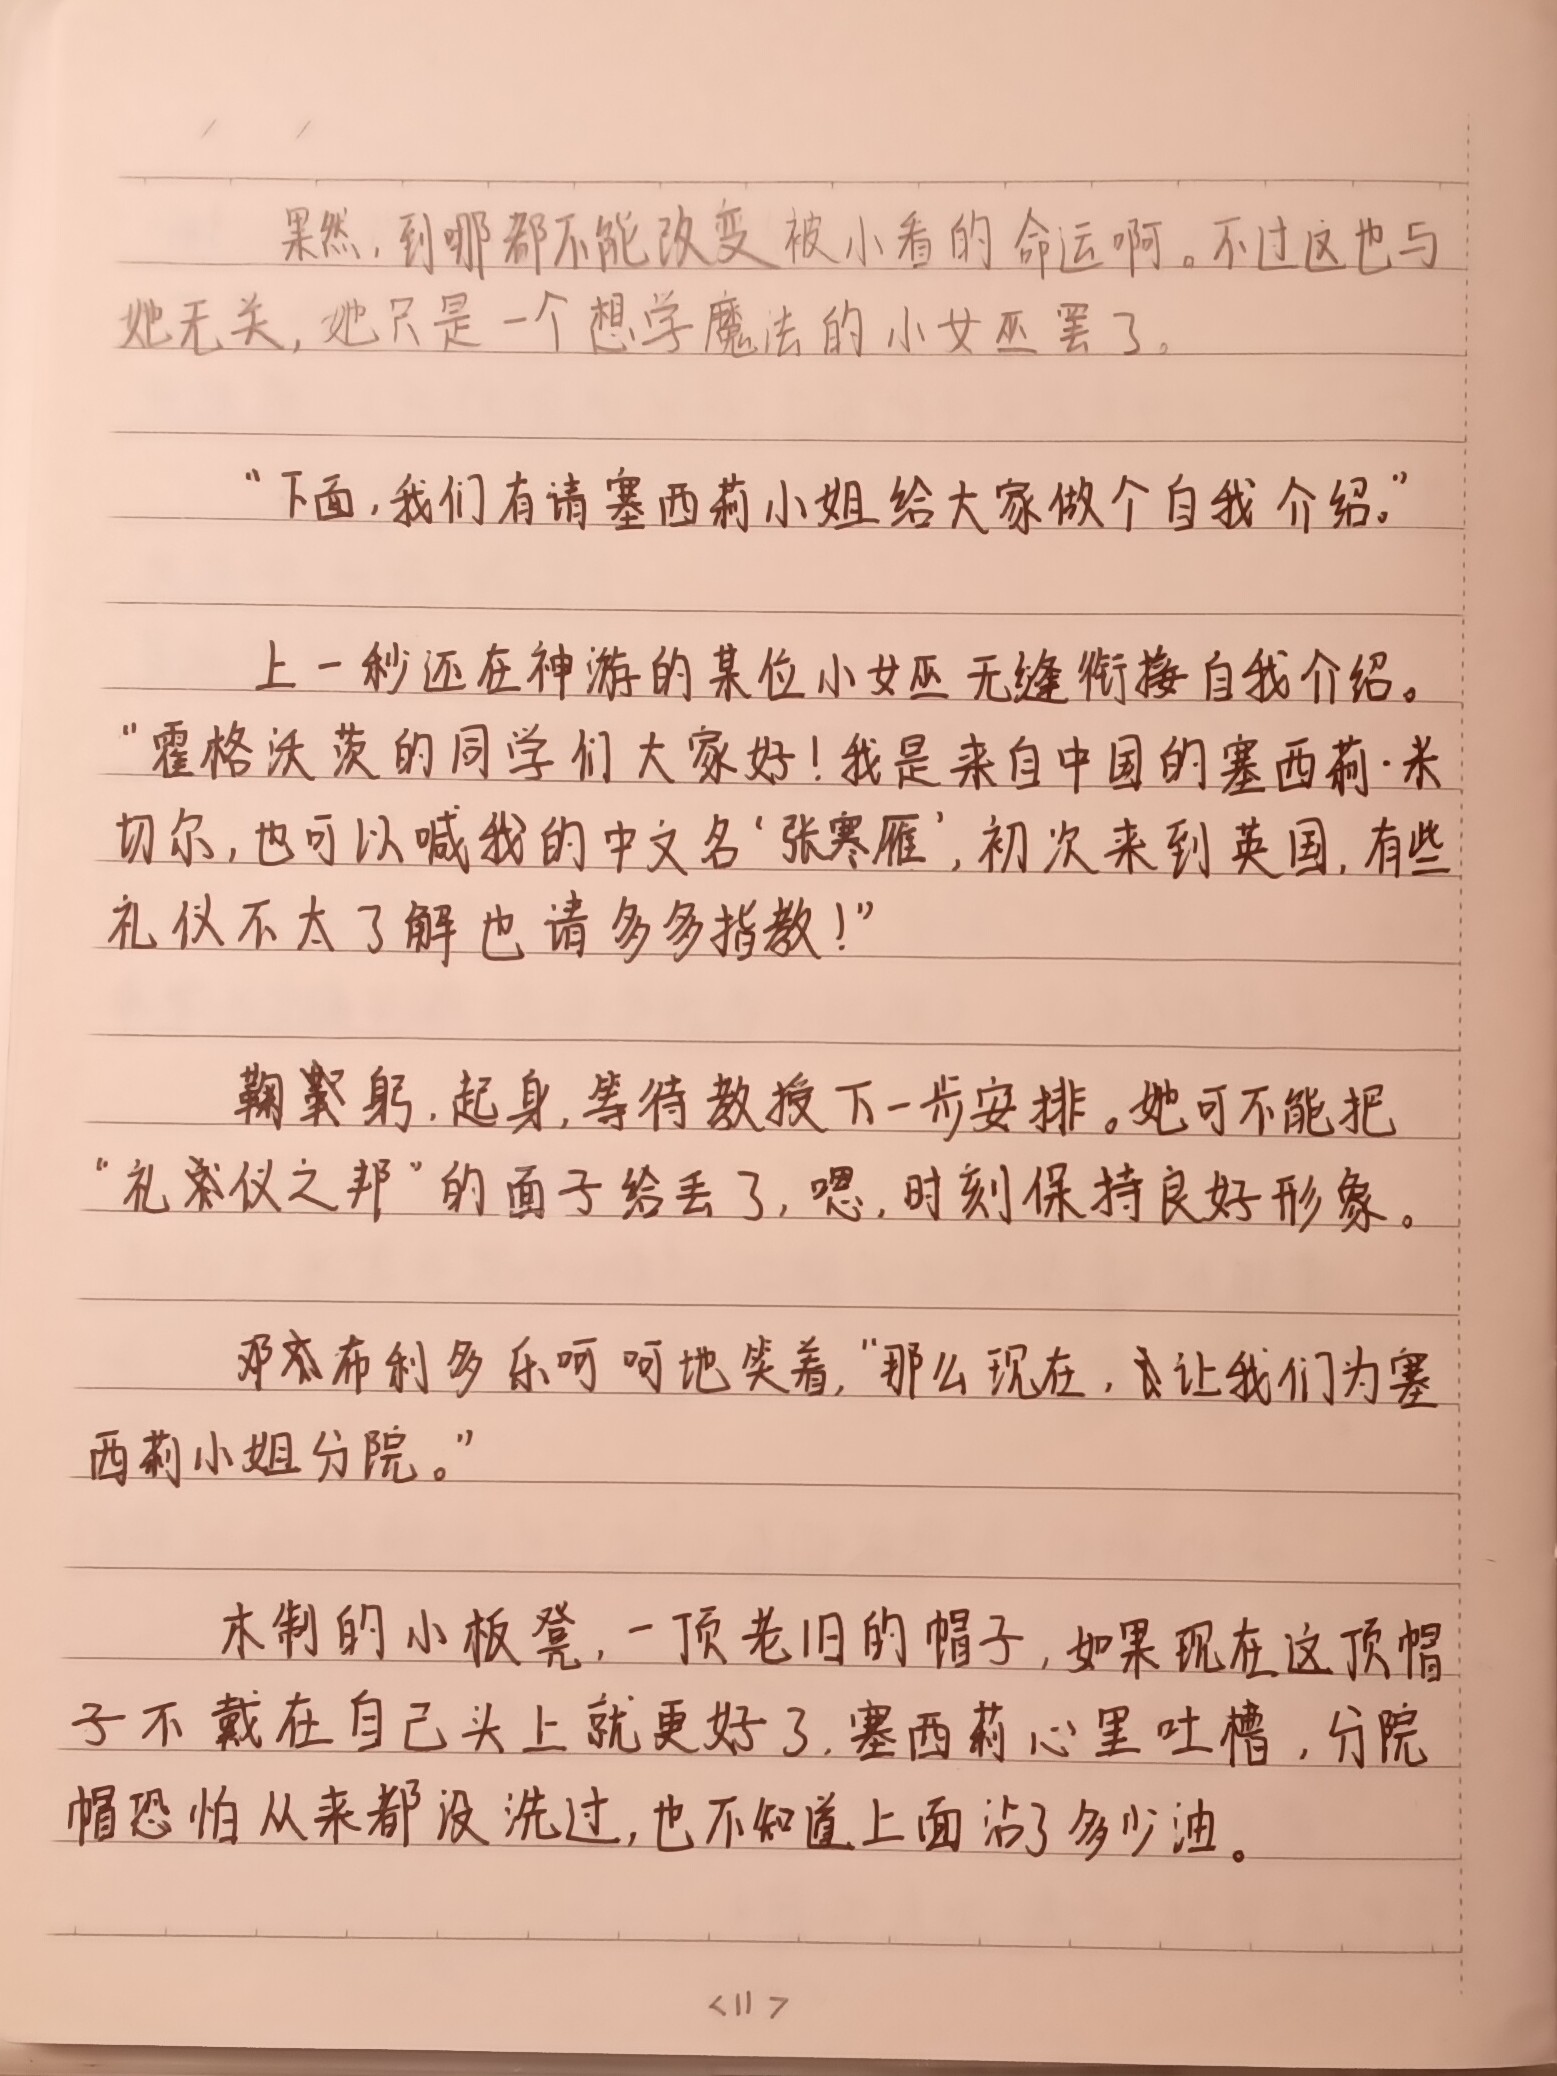 果然，到哪都不能改变被小看的命运啊。不过这也与
她无关，她只是一个想学魔法的小女巫罢了。
“下面，我们有请塞西莉小姐给大家做个自我介绍。”
上一秒还在神游的某位小女巫无缝衔接自我介绍。
“霍格沃茨的同学们大家好！我是来自中国的塞西莉·米
切尔，也可以喊我的中文名‘张寒雁’，初次来到英国，有些
礼仪不太了解也请多多指教！”
鞠躬，起身，等待教授下一步安排。她可不能把
“礼仪之邦”的面子给丢了，嗯，时刻保持良好形象。
邓布利多乐呵呵地笑着，“那么现在，让我们为塞
西莉小姐分院。”
木制的小板凳，一顶老旧的帽子，如果现在这顶帽
子不戴在自己头上就更好了，塞西莉心里吐槽，分院
帽恐怕从来都没洗过，也不知道上面沾了多少油。
<11>